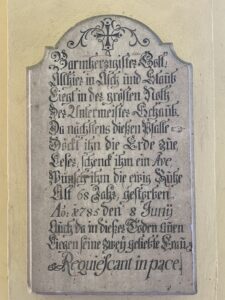 Barmherzigister Gott,
Alhier in Asch und Staub
Liegt in der grösten Noth
Der Untermeister Schaub.
Da nächstens dießen Psalle
Deckt ihn die Erde zue,
Leser, schenck ihm ein Ave
Wünsch ihm die ewig Ruhe
Alt 68 Jahr, gestorben
Aõ: 1785 den 8 Junÿ
Auch da in dießes Toden
Liegen seine zweÿ geliebte Frau
Requiescant in pace.